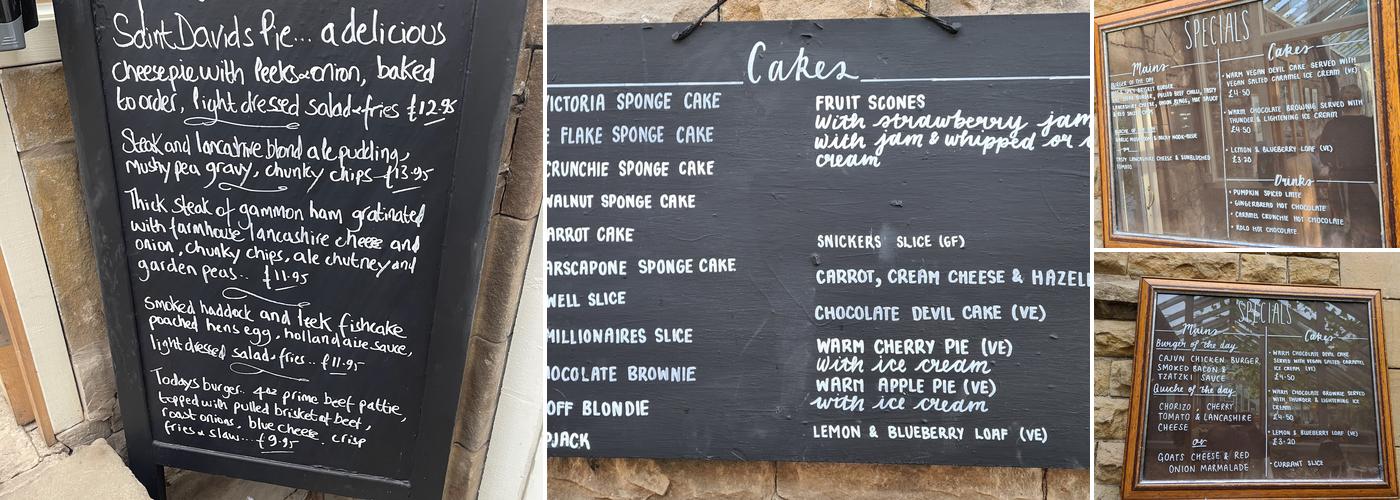 Saint Davids Pie... a delicious
cheese pie with leeks & onion, baked
to order, light dressed salad & fries £12.95
Steak and lancashire blond ale pudding,
Mushy pea gravy, chunky chips £13.95
Thick steak of gammon ham gratinated
with farmhouse lancashire cheese and
onion, chunky chips, ale chutney and
garden peas.. £11.95
Smoked haddock and leek fishcake
poached hens egg, hollandaise sauce,
light dressed salad & fries.. £11.95
Todays burger.. 4oz prime beef pattie,
topped with pulled brisket of beef,
roast onions, blue cheese, crisp
fries & slaw... £9.95
Cakes
VICTORIA SPONGE CAKE
E FLAKE SPONGE CAKE
CRUNCHIE SPONGE CAKE
WALNUT SPONGE CAKE
ARROT CAKE
ARSCAPONE SPONGE CAKE
WELL SLICE
MILLIONAIRES SLICE
OCOLATE BROWNIE
OFF BLONDIE
PJACK
FRUIT SCONES
With strawberry jam
with jam & whipped or
cream
SNICKERS SLICE (GF)
CARROT, CREAM CHEESE & HAZEL
CHOCOLATE DEVIL CAKE (VE)
WARM CHERRY PIE (VE)
With ice cream
WARM APPLE PIE (VE)
with ice cream
LEMON & BLUEBERRY LOAF (VE)
SPECIALS
Mains
BURGER OF THE DAY
BURGER, PULLED BEEF CHILLI, TASTY
LANCASHIRE CHEESE, ONION RINGS, HOT SAUCE
TASTY LANCASHIRE CHEESE & SUNBLUSHED
TOMATO
Cakes
• WARM VEGAN DEVIL CAKE SERVED WITH
VEGAN SALTED CARAMEL ICE CREAM (VE)
£4.50
• WARM CHOCOLATE BROWNIE SERVED WITH
THUNDER & LIGHTENING ICE CREAM
£4.50
• LEMON & BLUEBERRY LOAF (VE)
£3.20
Drinks
• PUMPKIN SPICED LATTE
• GINGERBREAD HOT CHOCOLATE
• CARAMEL CRUNCHIE HOT CHOCOLATE
• ROLO HOT CHOCOLATE
SPECIALS
Mains
Burger of the day
CAJUN CHICKEN BURGER
SMOKED BACON &
TZATZKI SAUCE
Quiche of the day
CHORIZO, CHERRY
TOMATO & LANCASHIRE
CHEESE
or
GOATS CHEESE & RED
ONION MARMALADE
Cakes
• WARM CHOCOLATE DEVIL CAKE
SERVED WITH VEGAN SALTED CARAMEL
ICE CREAM (VE)
£4.50
• WARM CHOCOLATE BROWNIE SERVED
WITH THUNDER & LIGHTENING ICE
CREAM
£4.50
• LEMON & BLUEBERRY LOAF (VE)
£3.20
• CURRANT SLICE